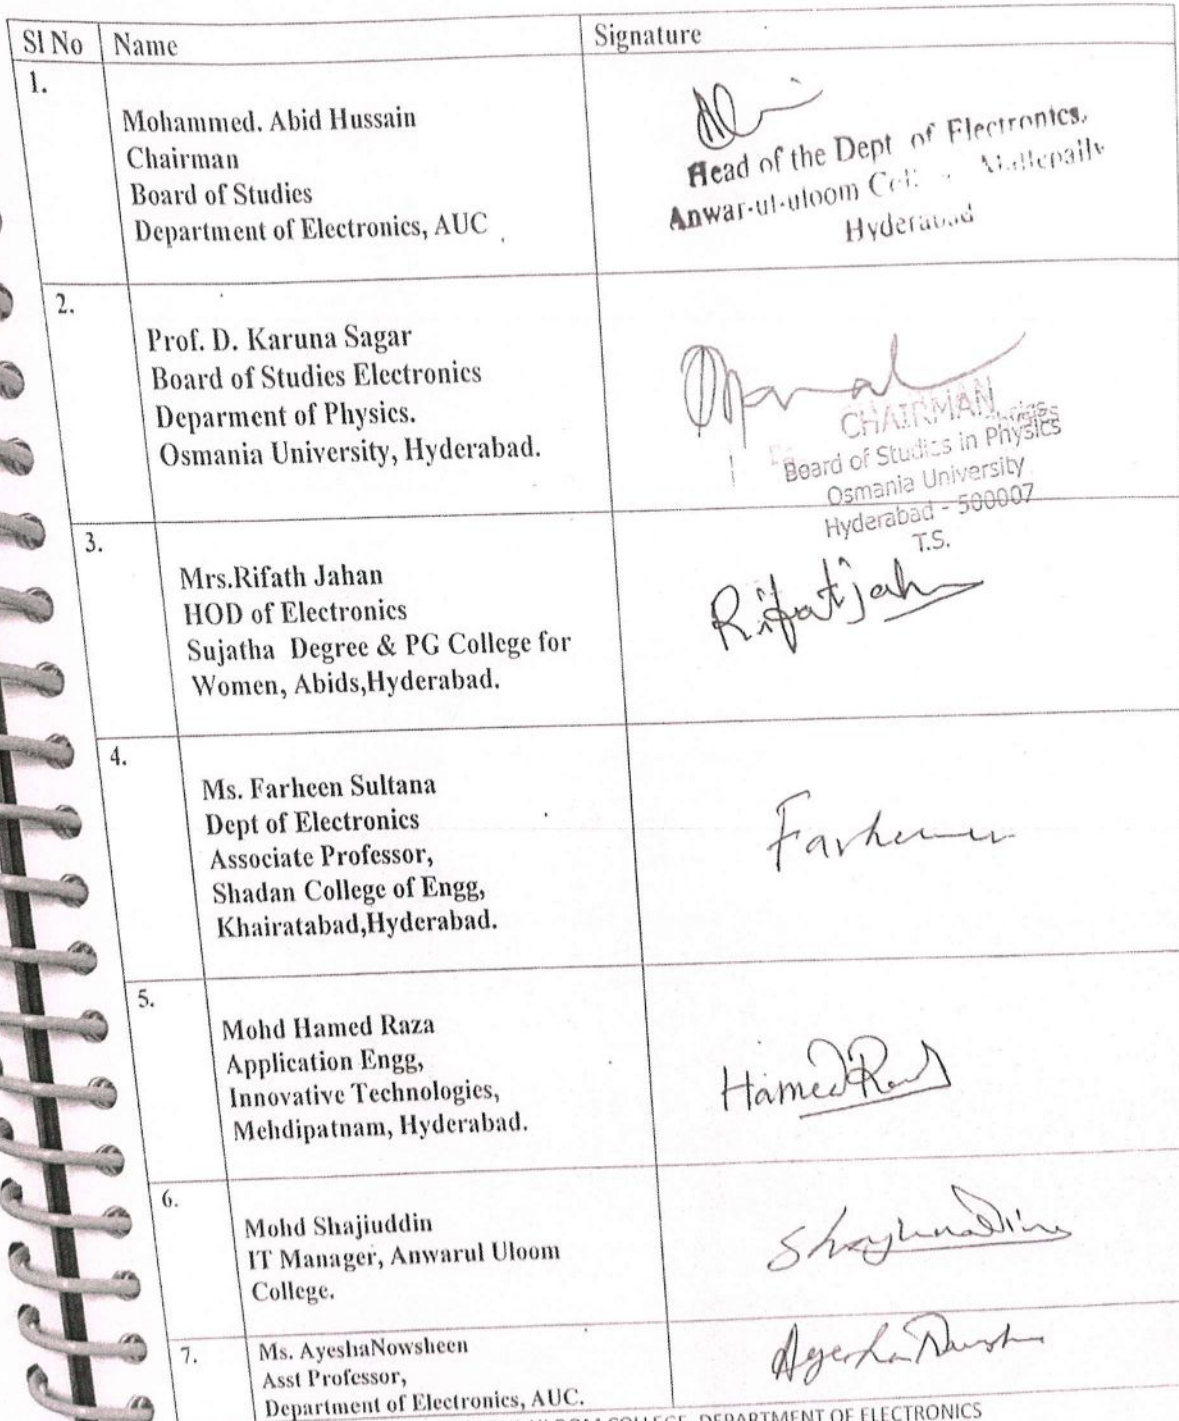 Sl No Name Signature
1.
Mohammed. Abid Hussain
Chairman
Board of Studies
Department of Electronics, AUC
Head of the Dept of Electronics,
Anwar-ul-uloom
Hyderabad
2.
Prof. D. Karuna Sagar
Board of Studies Electronics
Deparment of Physics.
Osmania University, Hyderabad.
CHAIRMAN
Board of Studies in Physics
Osmania University
Hyderabad - 500007
T.S.
3.
Mrs.Rifath Jahan
HOD of Electronics
Sujatha Degree & PG College for
Women, Abids,Hyderabad.
4.
Ms. Farheen Sultana
Dept of Electronics
Associate Professor,
Shadan College of Engg,
Khairatabad,Hyderabad.
Farheen
5.
Mohd Hamed Raza
Application Engg,
Innovative Technologies,
Mehdipatnam, Hyderabad.
Hamed
6.
Mohd Shajiuddin
IT Manager, Anwarul Uloom
College.
7.
Ms. AyeshaNowsheen
Asst Professor,
Department of Electronics, AUC.
Ayesha
COLLEGE, DEPARTMENT OF ELECTRONICS